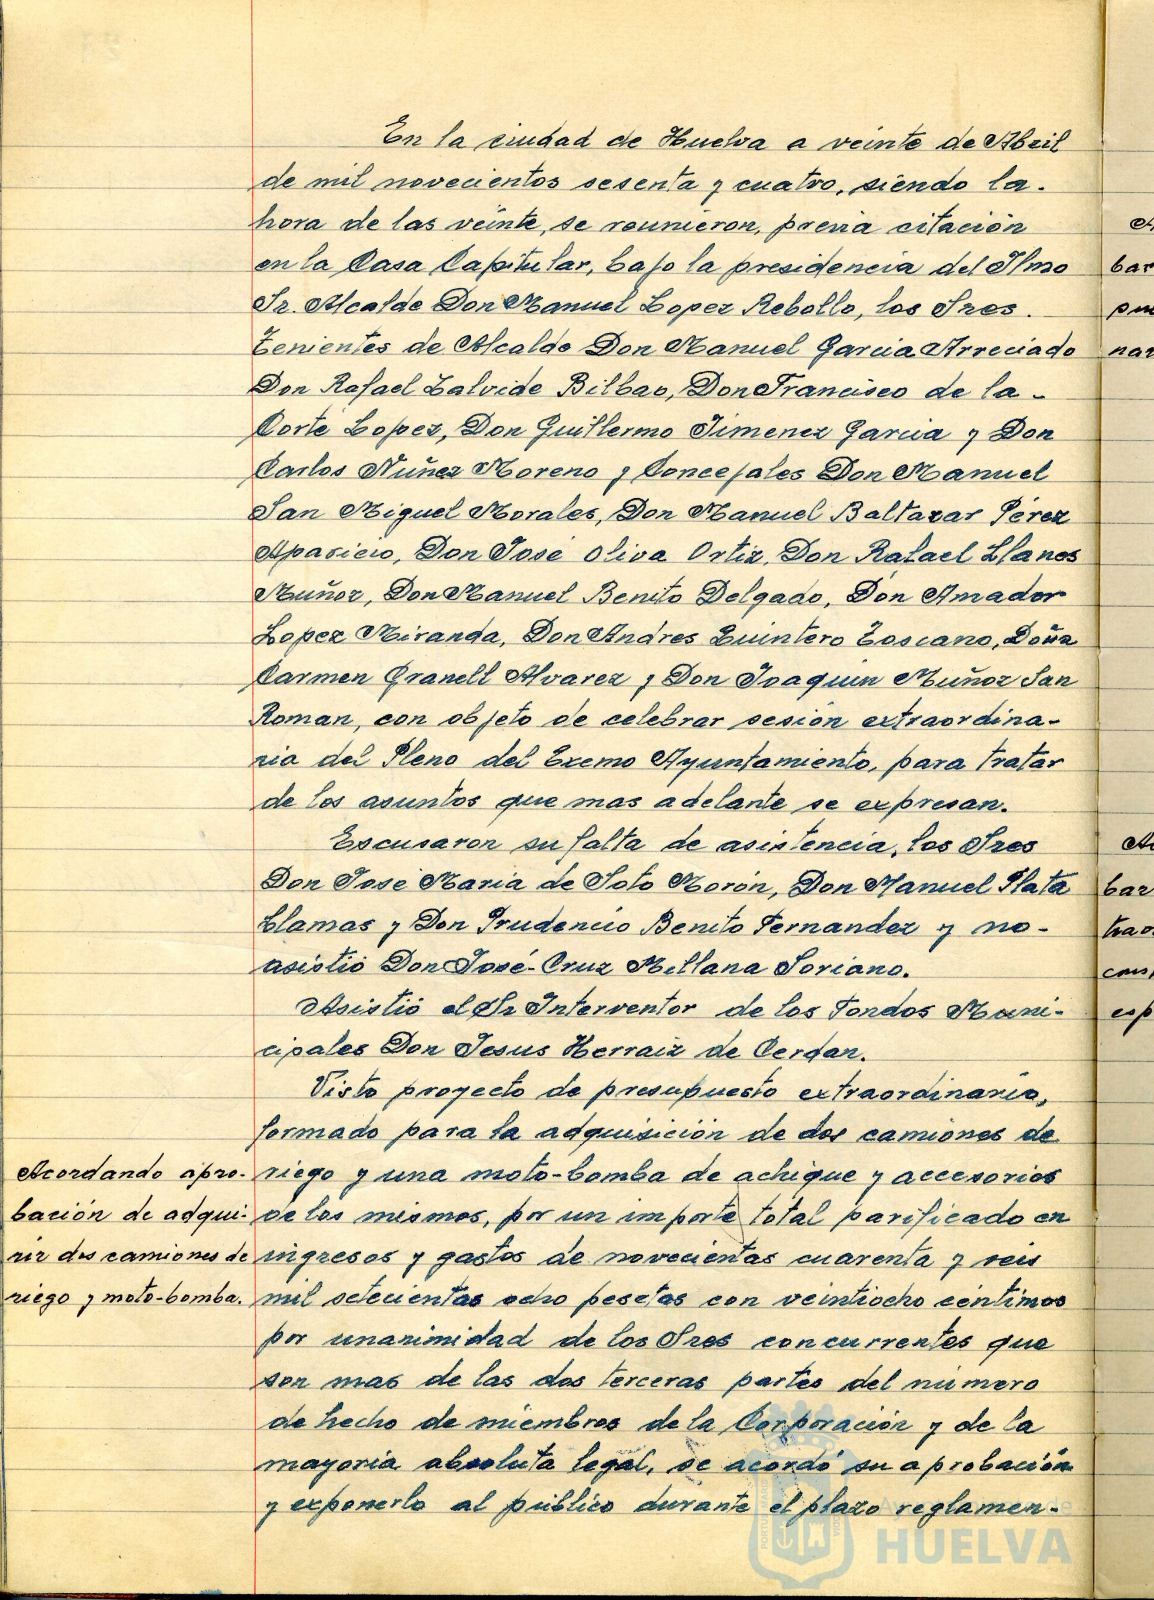 En la ciudad de Huelva a veinte de Abril
de mil novecientos sesenta y cuatro, siendo la-
hora de las veinte, se reunieron, previa citación
en la Casa Capitular, bajo la presidencia del Ilmo
Sr. Alcalde Don Manuel Lopez Rebollo, los Sres.
Tenientes de Alcalde Don Manuel Garcia Arreciado
Don Rafael Zalvide Bilbao, Don Francisco de la-
Corte Lopez, Don Guillermo Jimenez Garcia y Don
Carlos Nuñez Moreno y Concejales Don Manuel
San Miguel Morales, Don Manuel Baltazar Pérez
Aparicio, Don José Oliva Ortiz, Don Rafael Llanes
Muñoz, Don Manuel Benito Delgado, Don Amador
Lopez Miranda, Don Andres Quintero Toscano, Doña
Carmen Granell Alvarez y Don Joaquin Muñoz San
Roman, con objeto de celebrar sesión extraordina-
ria del Pleno del Excmo Ayuntamiento, para tratar
de los asuntos que mas adelante se expresan.
Escusaron su falta de asistencia, los Sres
Don José Maria de Soto Morón, Don Manuel Plata
Llamas y Don Prudencio Benito Fernandez y no-
asistió Don José-Cruz Millana Soriano.
Asistió el Sr Interventor de los Fondos Muni-
cipales Don Jesus Herraiz de Cerdan.
Visto proyecto de presupuesto extraordinario,
formado para la adquisición de dos camiones de
Acordando apro-
bación de adqui-
rir dos camiones de
riego y moto-bomba.
riego y una moto-bomba de achique y accesorios
de los mismos, por un importe total parificado en
ingresos y gastos de novecientas cuarenta y seis
mil setecientas ocho pesetas con veintiocho céntimos
por unanimidad de los Sres concurrentes que
son mas de las dos terceras partes del número
de hecho de miembros de la Corporación y de la
mayoria absoluta legal, se acordó su aprobación
y exponerlo al público durante el plazo reglamen-
HUELVA